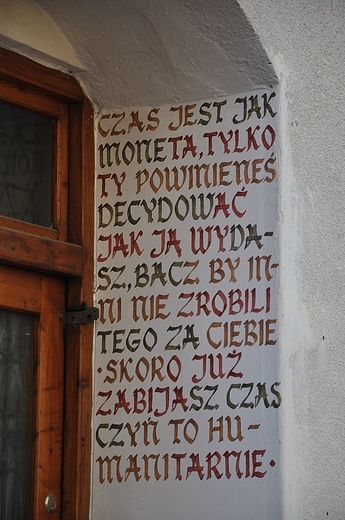 CZAS JEST JAK
MONETA, TYLKO
TY POWINIENEŚ
DECYDOWAĆ
JAK JĄ WYDA-
SZ, BACZ BY IN-
NI NIE ZROBILI
TEGO ZA CIEBIE
·SKORO JUŻ
ZABIJASZ CZAS
CZYŃ TO HU-
MANITARNIE·